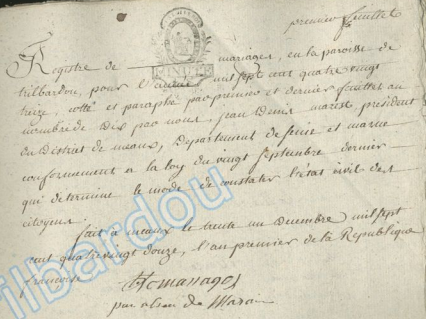 premier feuillet
Registre de mariages, en la paroisse de
trilbardou, pour l'année mil sept cent quatre vingt
treize, cotté et paraphé par premier et dernier feuillet au
nombre de Dix par nous, Jean Denis président
du District de meaux, Département de seine et marne
conformement a la loy du vingt septembre dernier
qui determine le mode de constater l'etat civil des
citoyens.
fait à meaux le trente un Decembre mil sept
cent quatre vingt douze, l'an premier de la Republique
francoise
par absence de
ilbardou